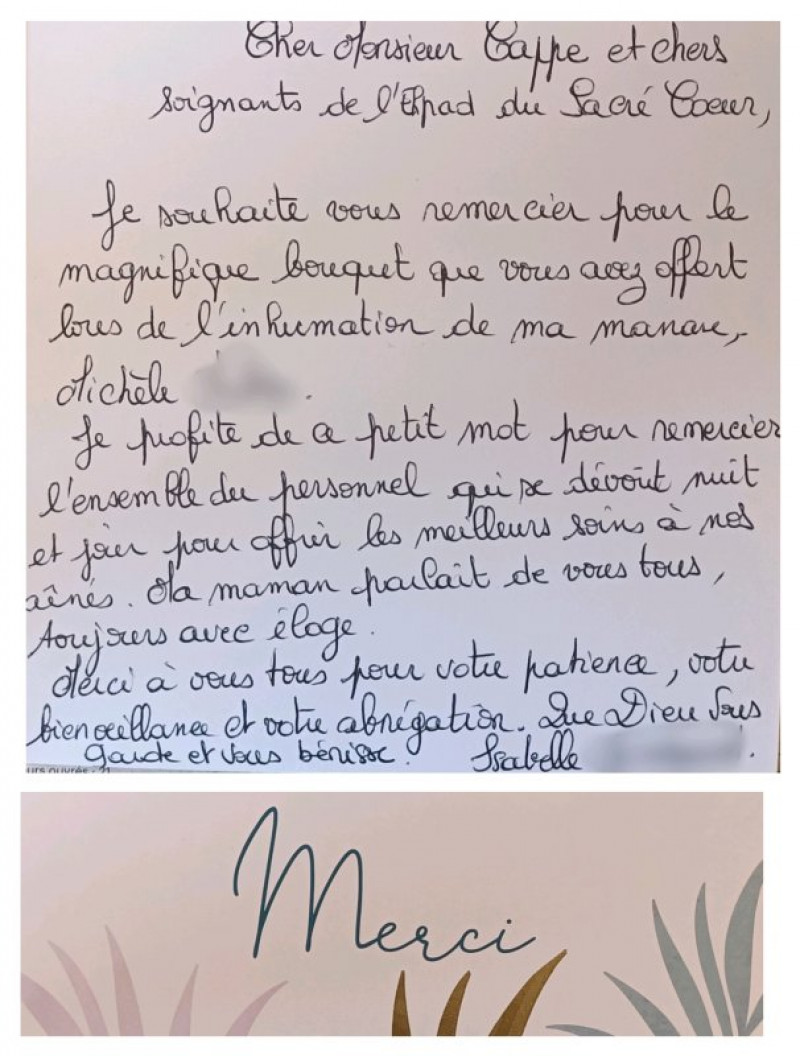 Cher Monsieur Cappe et chers
soignants de l'Ehpad du Sacré Coeur,
Je souhaite vous remercier pour le
magnifique bouquet que vous avez offert
lors de l'inhumation de ma maman,
Michèle
Je profite de ce petit mot pour remercier
l'ensemble du personnel qui se dévout nuit
et jour pour offrir les meilleurs soins à nos
aînés. Ma maman parlait de vous tous,
toujours avec éloge.
Merci à vous tous pour votre patience, votre
bienveillance et votre abnégation. Que Dieu vous
garde et vous bénisse. Isabelle
Merci